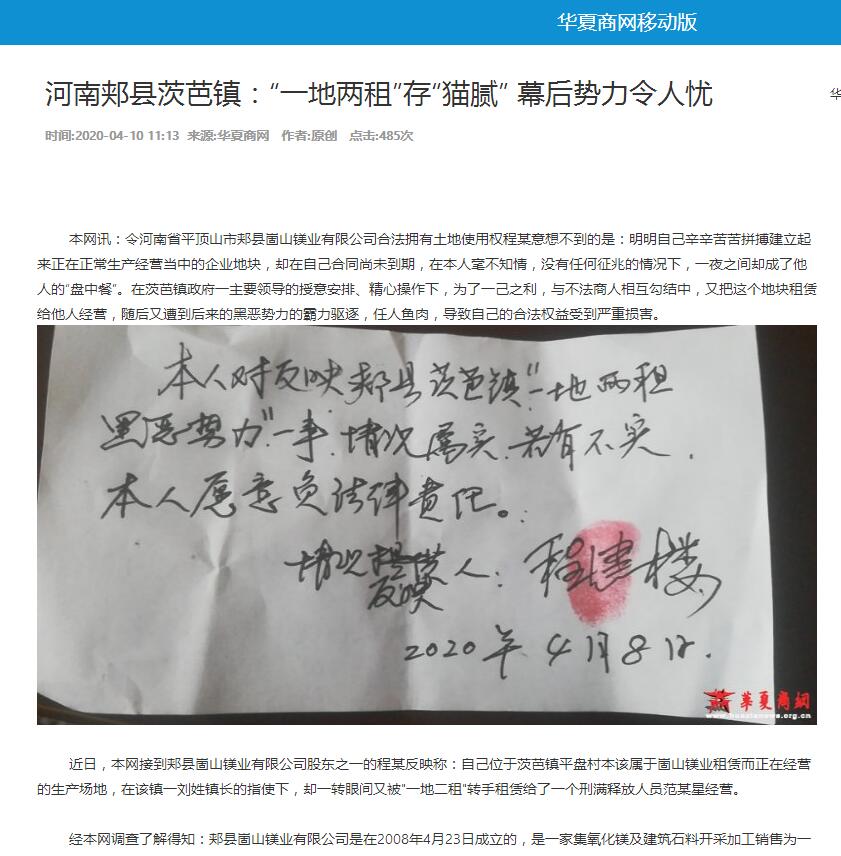 华夏商网移动版
河南郏县茨芭镇：“一地两租”存“猫腻” 幕后势力令人忧
华
时间:2020-04-10 11:13 来源:华夏商网 作者:原创 点击:485次
本网讯：令河南省平顶山市郏县崮山镁业有限公司合法拥有土地使用权程某意想不到的是：明明自己辛辛苦苦拼搏建立起
来正在正常生产经营当中的企业地块，却在自己合同尚未到期，在本人毫不知情，没有任何征兆的情况下，一夜之间却成了他
人的“盘中餐”。在茨芭镇政府一主要领导的授意安排、精心操作下，为了一己之利，与不法商人相互勾结中，又把这个地块租赁
给他人经营，随后又遭到后来的黑恶势力的霸力驱逐，任人鱼肉，导致自己的合法权益受到严重损害。
本人对反映郏县茨芭镇“一地两租
黑恶势力”一事.情况属实.若有不实.
本人愿意负法律责任。
情况
反映人：程建楼
2020年4月8日.
华夏商网
www.huaxianews.org.cn
近日，本网接到郏县崮山镁业有限公司股东之一的程某反映称：自己位于茨芭镇平盘村本该属于崮山镁业租赁而正在经营
的生产场地，在该镇一刘姓镇长的指使下，却一转眼间又被“一地二租”转手租赁给了一个刑满释放人员范某星经营。
经本网调查了解得知：郏县崮山镁业有限公司是在2008年4月23日成立的，是一家集氧化镁及建筑石料开采加工销售为一